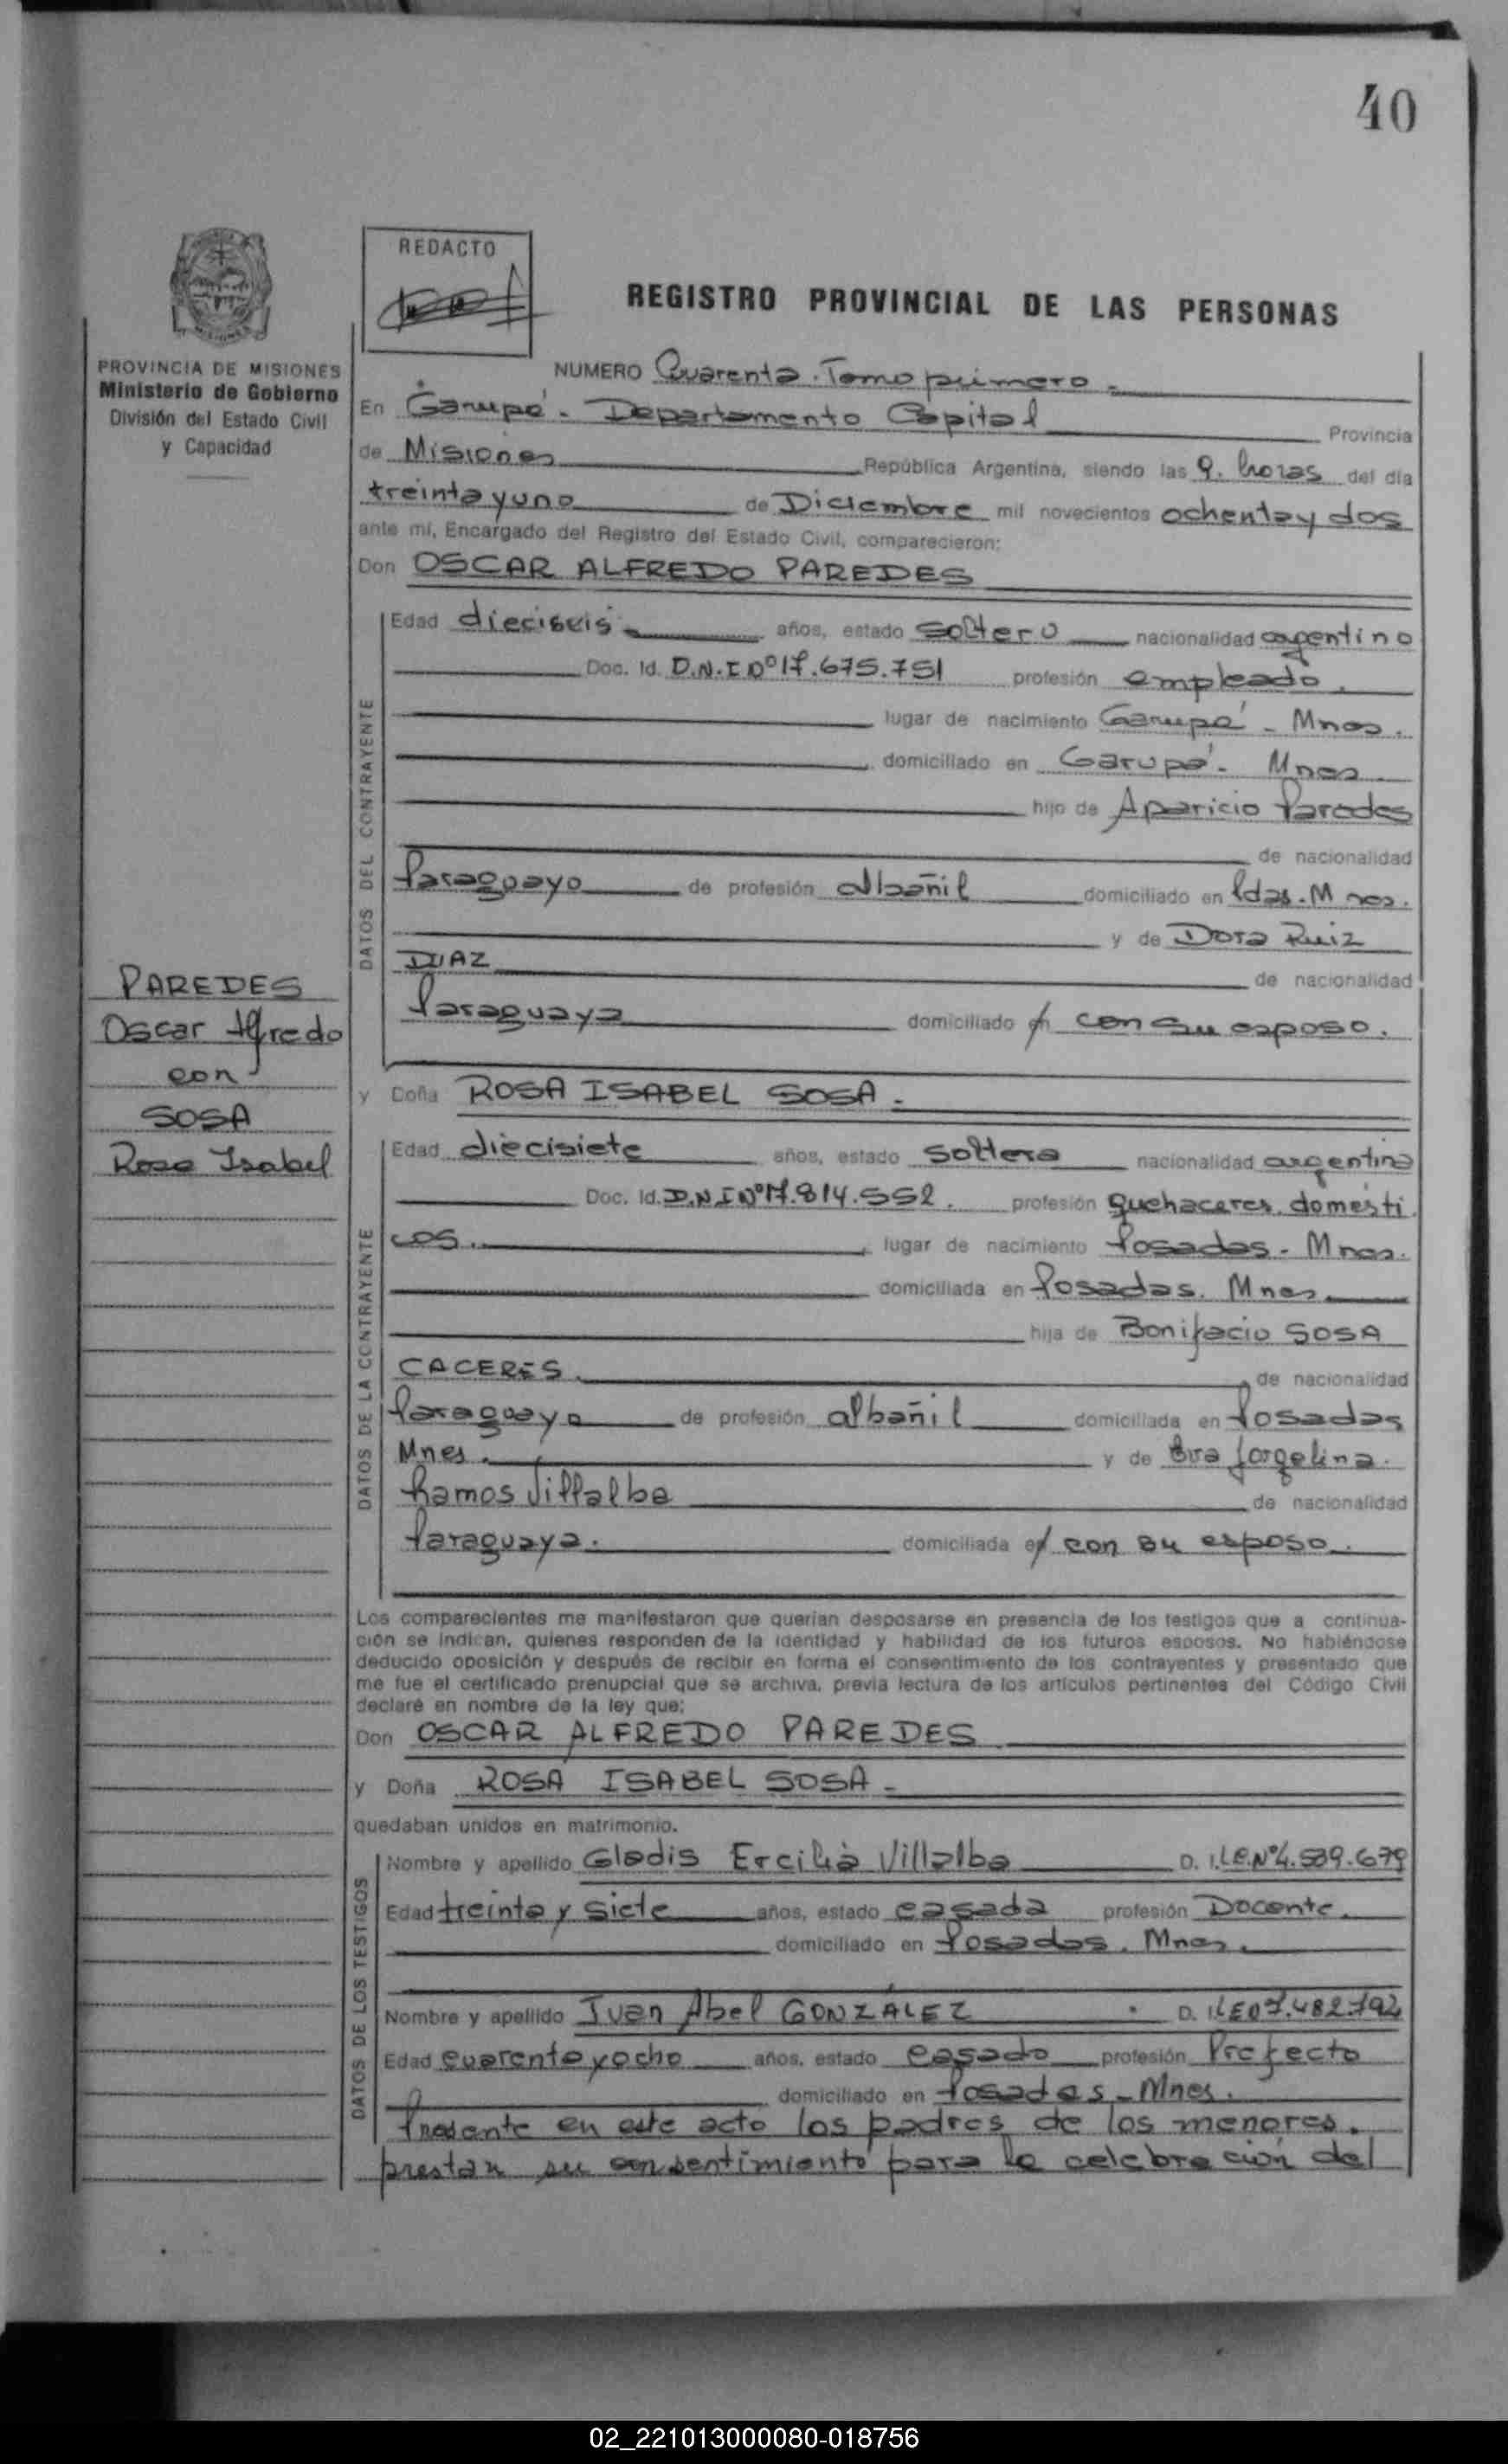 40
REDACTO
REGISTRO PROVINCIAL DE LAS PERSONAS
PROVINCIA DE MISIONES
Ministerio de Gobierno
División del Estado Civil
y Capacidad
NUMERO Cuarenta. Tomo primero.
En Garupá. Departamento Capital Provincia
de Misiones República Argentina, siendo las 9. horas del día
treinta y uno de Diciembre mil novecientos ochenta y dos
ante mí, Encargado del Registro del Estado Civil, comparecieron:
Don OSCAR ALFREDO PAREDES
DATOS DEL CONTRAYENTE
Edad dieciseis años, estado soltero nacionalidad argentino
Doc. Id. D.N.I Nº 17.675.751 profesión empleado.
lugar de nacimiento Garupá - Mnes.
domiciliado en Garupá. Mnes
hijo de Aparicio Paredes
de nacionalidad
Paraguayo de profesión albañil domiciliado en Pdas. Mnes.
y de Dora Ruiz
DIAZ de nacionalidad
Paraguaya domiciliado en con su esposo.
PAREDES
Oscar Alfredo
con
SOSA
Rosa Isabel
y Doña ROSA ISABEL SOSA.
DATOS DE LA CONTRAYENTE
Edad diecisiete años, estado soltera nacionalidad argentina
Doc. Id. D.N.I Nº 17.814.552. profesión quehaceres domesti
cos. lugar de nacimiento Posadas - Mnes.
domiciliada en Posadas. Mnes
hija de Bonifacio SOSA
CACERES. de nacionalidad
Paraguayo de profesión albañil domiciliada en Posadas
Mnes. y de Jorgelina.
Ramos Villalba de nacionalidad
Paraguaya. domiciliada en con su esposo.
Los comparecientes me manifestaron que querían desposarse en presencia de los testigos que a continua-
ción se indican, quienes responden de la identidad y habilidad de los futuros esposos. No habiéndose
deducido oposición y después de recibir en forma el consentimiento de los contrayentes y presentado que
me fue el certificado prenupcial que se archiva, previa lectura de los artículos pertinentes del Código Civil
declaré en nombre de la ley que:
Don OSCAR ALFREDO PAREDES
y Doña ROSA ISABEL SOSA
quedaban unidos en matrimonio.
DATOS DE LOS TESTIGOS
Nombre y apellido Gladis Ercilia Villalba D. I. L.C. Nº 4.589.679
Edad treinta y siete años, estado casada profesión Docente.
domiciliado en Posadas. Mnes.
Nombre y apellido Juan Abel GONZÁLEZ D. I. LE 07.482.792
Edad cuarenta y ocho años, estado casado profesión Prefecto
domiciliado en Posadas - Mnes.
Presente en este acto los padres de los menores.
prestan su consentimiento para la celebración del
02_221013000080-018756